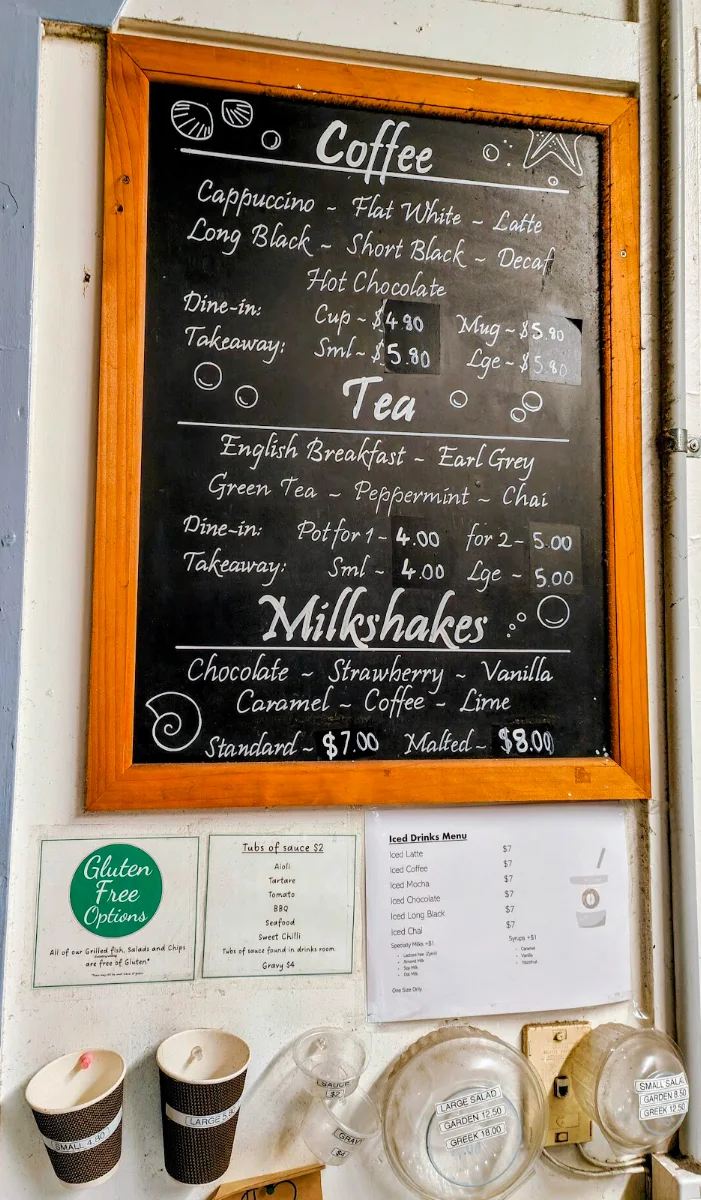 Coffee
Cappuccino ~ Flat White ~ Latte
Long Black ~ Short Black ~ Decaf
Hot Chocolate
Dine-in: Cup ~ $4.80 Mug ~ $5.80
Takeaway: Sml ~ $5.80 Lge ~ $5.80
Tea
English Breakfast ~ Earl Grey
Green Tea ~ Peppermint ~ Chai
Dine-in: Pot for 1 ~ 4.00 for 2 ~ 5.00
Takeaway: Sml ~ 4.00 Lge ~ 5.00
Milkshakes
Chocolate ~ Strawberry ~ Vanilla
Caramel ~ Coffee ~ Lime
Standard ~ $7.00 Malted ~ $8.00
Gluten
Free
Options
All of our Grilled fish, Salads and Chips
are free of Gluten.*
Tubs of sauce $2
Aioli
Tartare
Tomato
BBQ
Seafood
Sweet Chilli
Tubs of sauce found in drinks room
Gravy $4
Iced Drinks Menu
Iced Latte $7
Iced Coffee $7
Iced Mocha $7
Iced Chocolate $7
Iced Long Black $7
Iced Chai $7
Specialty Milks +$1 Syrups +$1
Almond Milk Vanilla
Soy Milk Hazelnut
One Size Only.
SMALL 4.80
LARGE 5.80
SAUCE
$2
GRAVY
$4
LARGE SALAD
GARDEN 12.50
GREEK 18.00
SMALL SALAD
GARDEN 8.50
GREEK 12.50